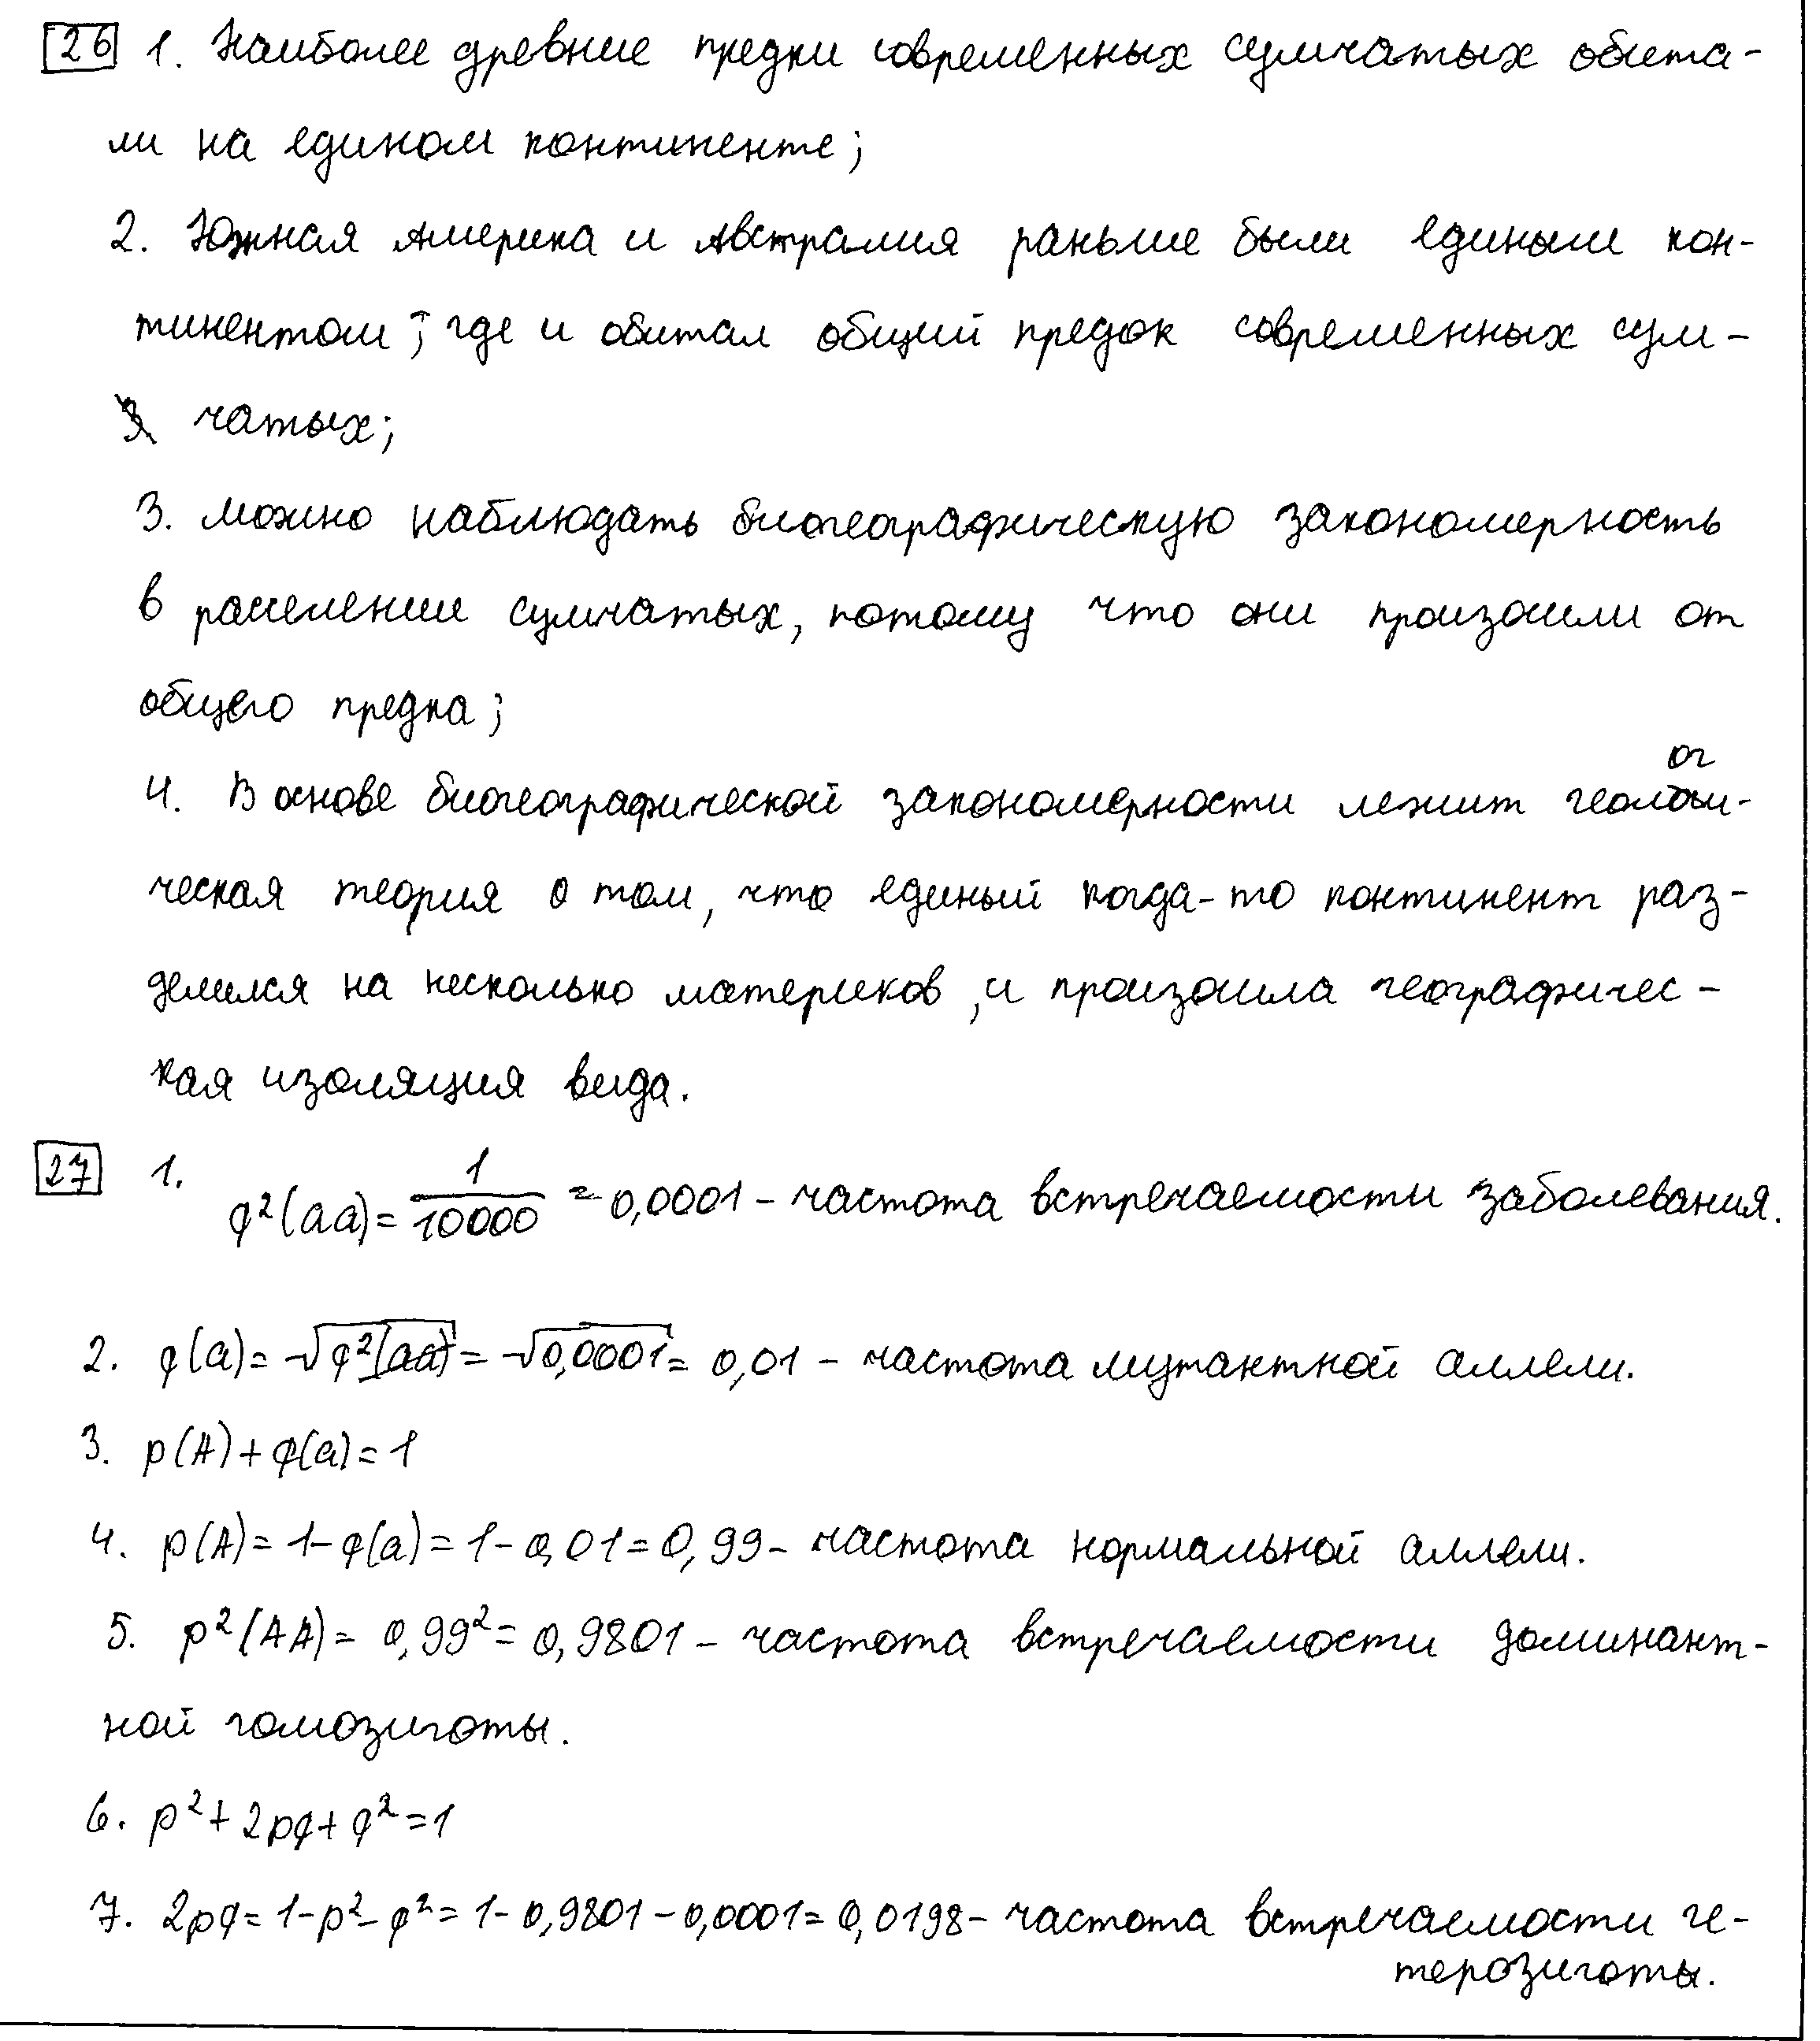 26 1. Наиболее древние предки современных сумчатых обита-
ли на едином континенте;
2. Южная Америка и Австралия раньше были единым кон-
тинентом, где и обитал общий предок современных сум-
чатых;
3. Можно наблюдать биогеографическую закономерность
в расселении сумчатых, потому что они произошли от
общего предка;
4. В основе биогеографической закономерности лежит геологи-
ческая теория о том, что единый когда-то континент раз-
делился на несколько материков, и произошла географичес-
кая изоляция вида.
27 1. q²(aa) = 1/10000 = 0,0001 – частота встречаемости заболевания.
2. q(a) = √q²(aa) = √0,0001 = 0,01 – частота мутантной аллели.
3. p(A) + q(a) = 1
4. p(A) = 1 – q(a) = 1 – 0,01 = 0,99 – частота нормальной аллели.
5. p²(AA) = 0,99² = 0,9801 – частота встречаемости доминант-
ной гомозиготы.
6. p² + 2pq + q² = 1
7. 2pq = 1 – p² – q² = 1 – 0,9801 – 0,0001 = 0,0198 – частота встречаемости ге-
терозиготы.